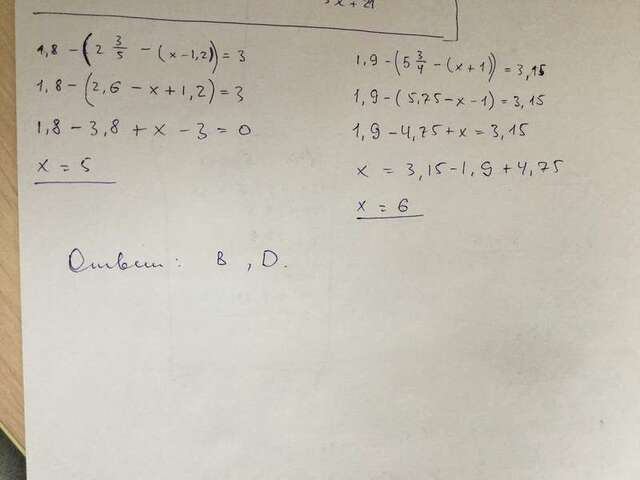 1,8 - (2 3/5 - (x-1,2)) = 3
1,8 - (2,6 - x + 1,2) = 3
1,8 - 3,8 + x - 3 = 0
x = 5
1,9 - (5 3/4 - (x+1)) = 3,15
1,9 - (5,75 - x - 1) = 3,15
1,9 - 4,75 + x = 3,15
x = 3,15 - 1,9 + 4,75
x = 6
Ответ: В, D.